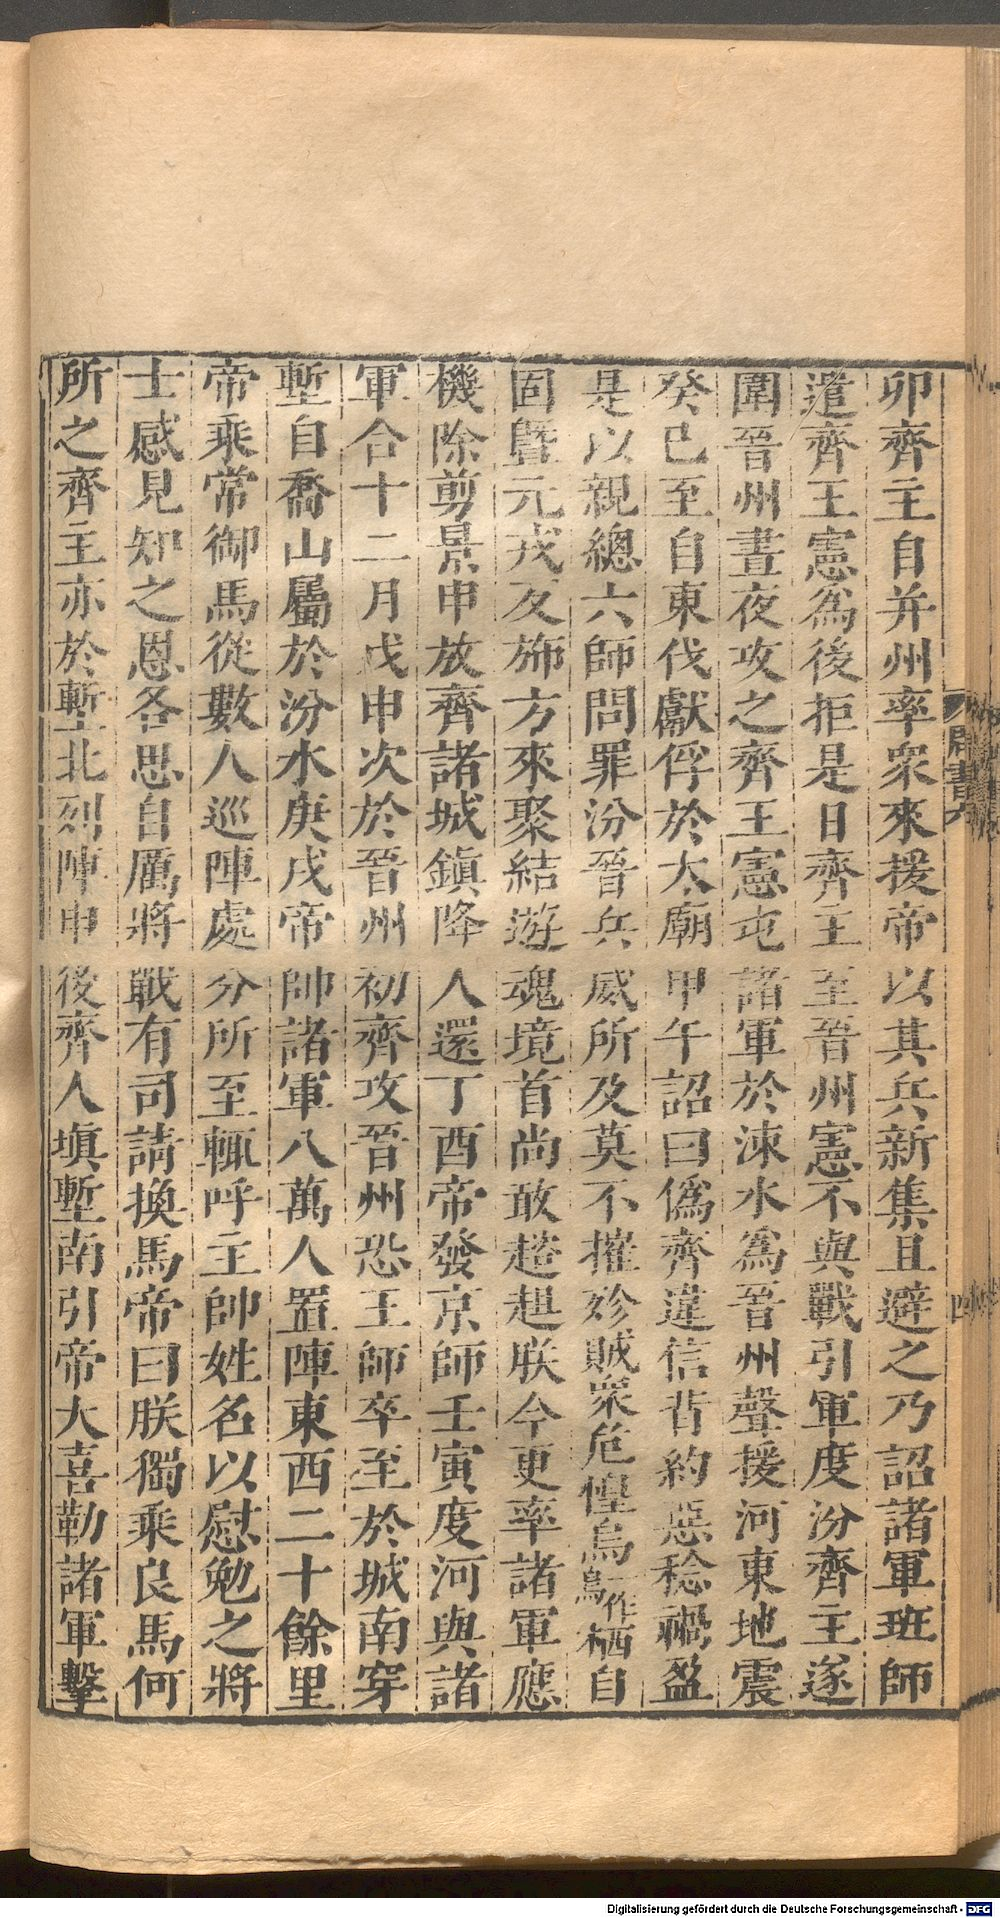 卯齊主自并州率衆來援帝以其兵新集且避之乃詔諸軍班師
遣齊王憲爲後拒是日齊主至晉州憲不與戰引軍度汾齊主遂
圍晉州晝夜攻之齊王憲屯諸軍於涑水爲晉州聲援河東地震
癸巳至自東伐獻俘於太廟甲午詔曰僞齊違信背約惡稔禍盈
是以親總六師問罪汾晉兵威所及莫不摧殄賊衆危惶烏一作鳥栖自
固曁元戎反斾方來聚結遊魂境首尚敢趑趄朕今更率諸軍應
機除剪景申放齊諸城鎮降人還丁酉帝發京師壬寅度河與諸
軍合十二月戊申次於晉州初齊攻晉州恐王師卒至於城南穿
塹自喬山屬於汾水庚戌帝帥諸軍八萬人置陣東西二十餘里
帝乘常御馬從數人巡陣處分所至輒呼主帥姓名以慰勉之將
士感見知之恩各思自厲將戰有司請換馬帝曰朕獨乘良馬何
所之齊主亦於塹北列陣申後齊人塡塹南引帝大喜勒諸軍擊
周書六
四
Digitalisierung gefördert durch die Deutsche Forschungsgemeinschaft - DFG